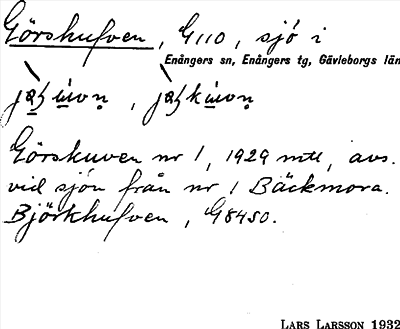 Görshufven, G110, sjö i
Enångers sn, Enångers tg, Gävleborgs län
Görskuven nr 1, 1929 mtl, avs.
vid sjön från nr 1 Bäckmora.
Björkhufven, G8450.
LARS LARSSON 1932